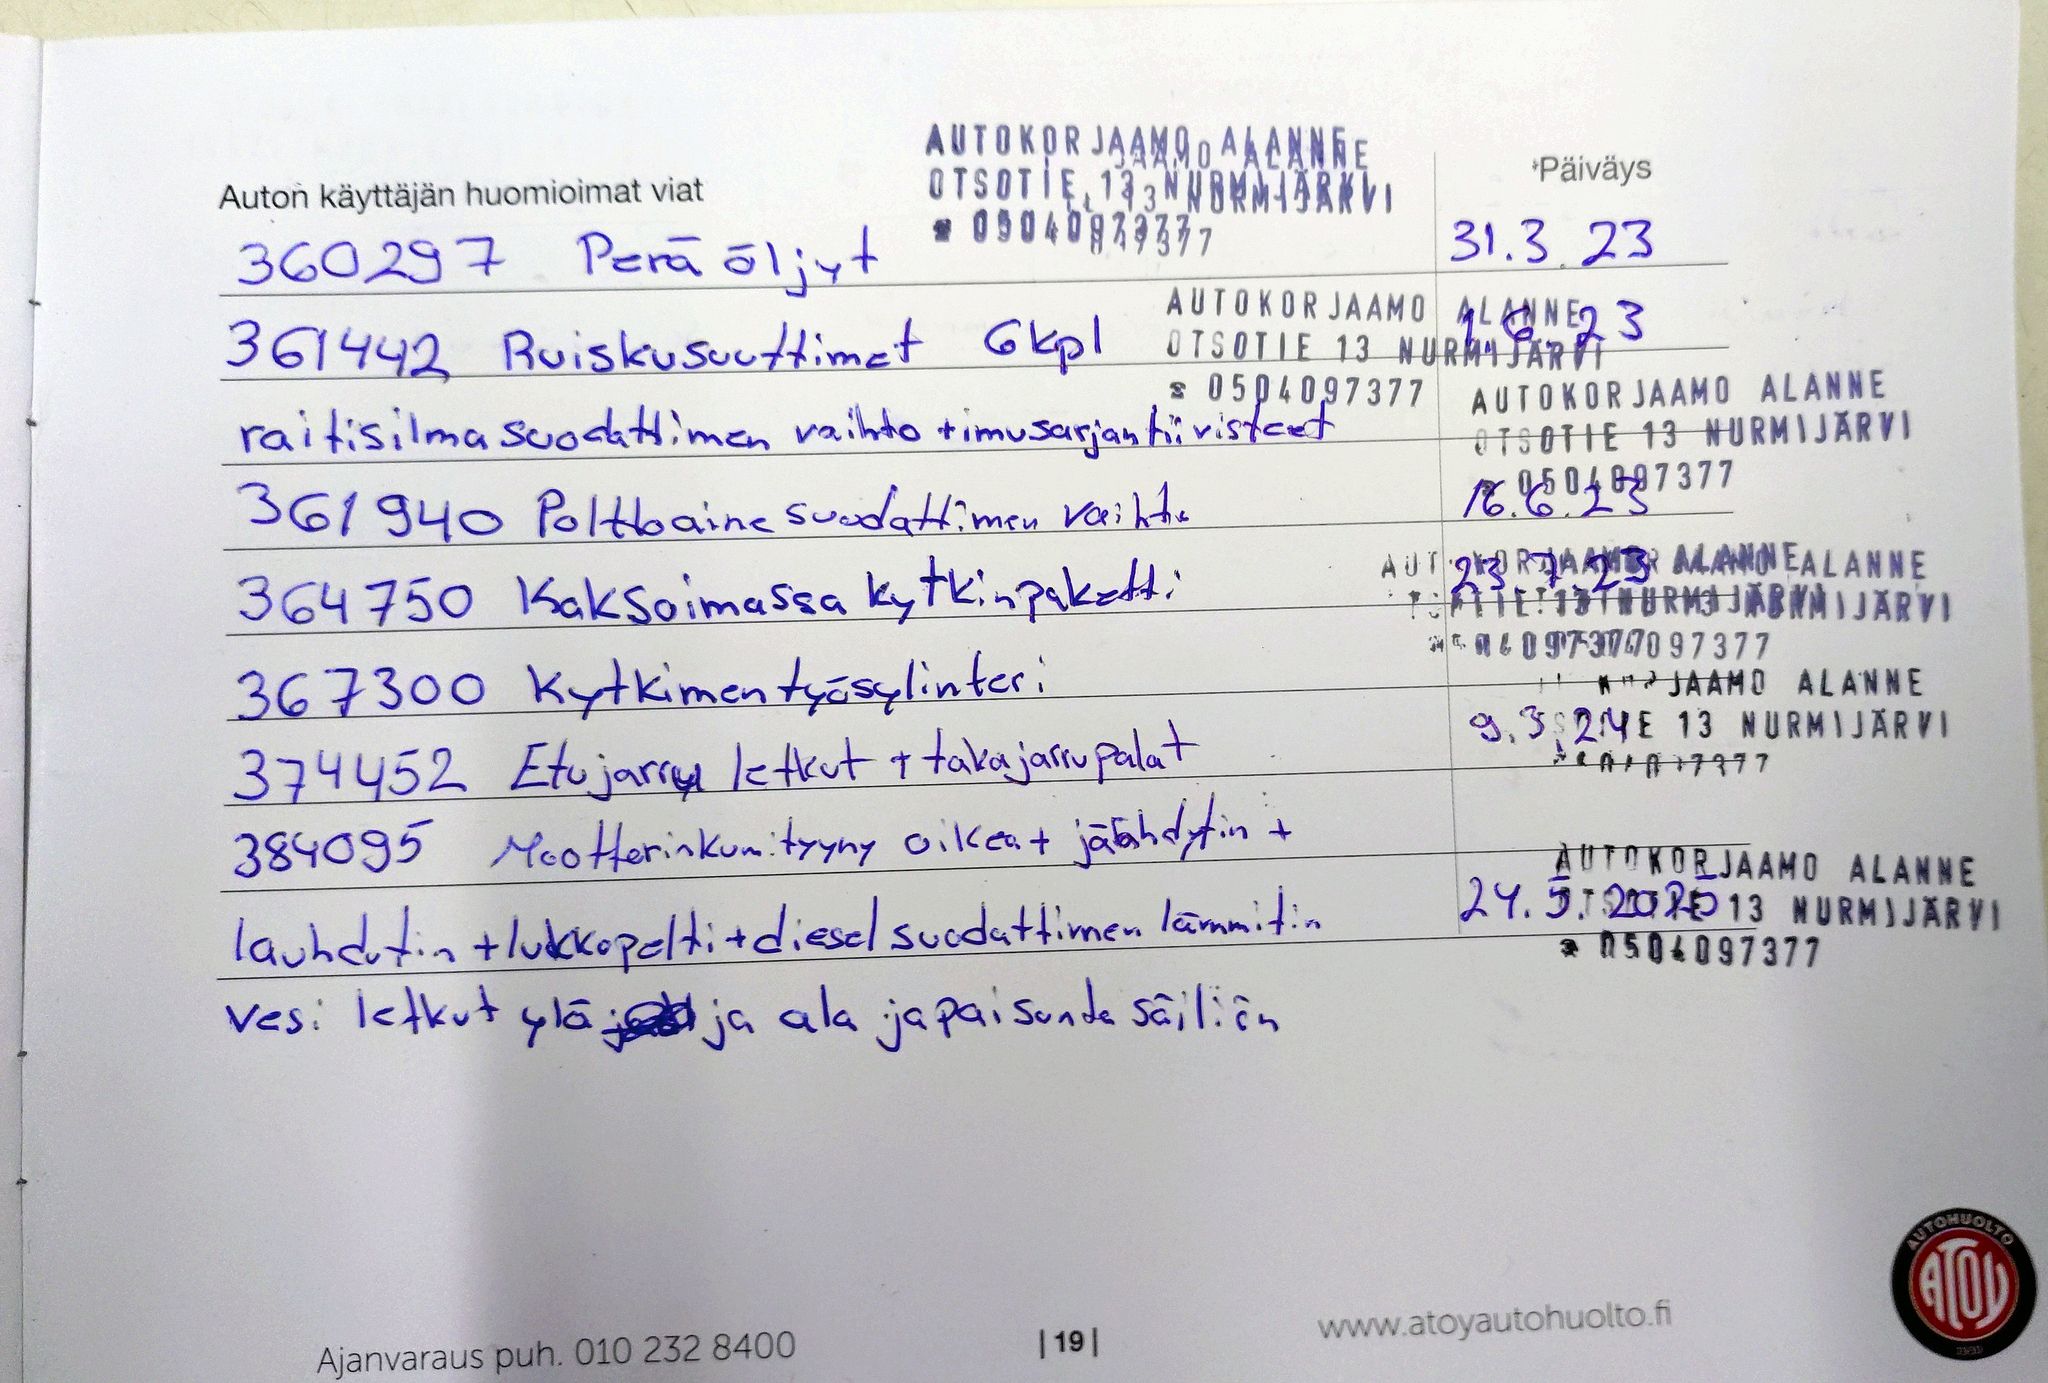 AUTOKORJAAMO ALANNE
OTSOTIE 13 NURMIJÄRVI
☎ 0504097377
Auton käyttäjän huomioimat viat
Päiväys
360297 Perä öljyt 31.3.23
AUTOKORJAAMO ALANNE
OTSOTIE 13 NURMIJÄRVI
☎ 0504097377
361442 Ruiskusuuttimet 6kpl 1.6.23
AUTOKORJAAMO ALANNE
OTSOTIE 13 NURMIJÄRVI
☎ 0504097377
raitisilmasuodattimen vaihto + imusarjan tiivisteet
361940 Polttoainesuodattimen vaihto 16.6.23
ALANNE
NURMIJÄRVI
097377
364750 Kaksoimassa kytkinpaketti 23.7.23
367300 Kytkimen työsylinteri
JAAMO ALANNE
13 NURMIJÄRVI
7377
374452 Etujarru letkut + takajarrupalat 9.3.24
384095 Moottorinkumityyny oikea + jäähdytin +
AUTOKORJAAMO ALANNE
13 NURMIJÄRVI
☎ 0504097377
lauhdutin + lukkopelti + diesel suodattimen lämmitin 24.5.2025
vesi letkut ylä ja ala ja paisunta säiliön
Ajanvaraus puh. 010 232 8400
|19|
www.atoyautohuolto.fi
AUTOHUOLTO
ATOY